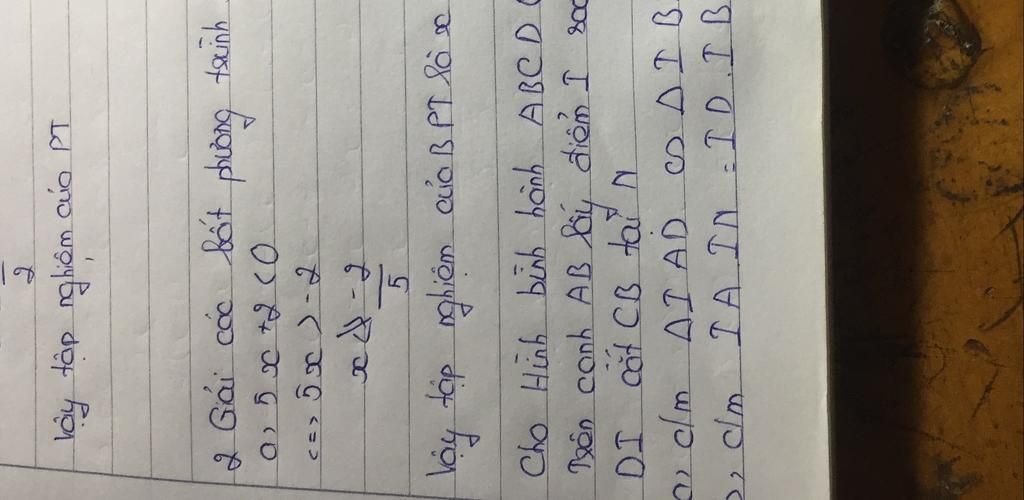 2
Vậy tập nghiệm của PT
2 Giải các bất phương trình
a, 5x + 2 < 0
<=> 5x > - 2
x - 2
5
Vậy tập nghiệm của BPT là x
Cho Hình bình hành ABCD
Trên cạnh AB lấy điểm I
DI cắt CB tại N
a, c/m ΔIAD ∽ ΔIB
c/m IA IN = ID.IB